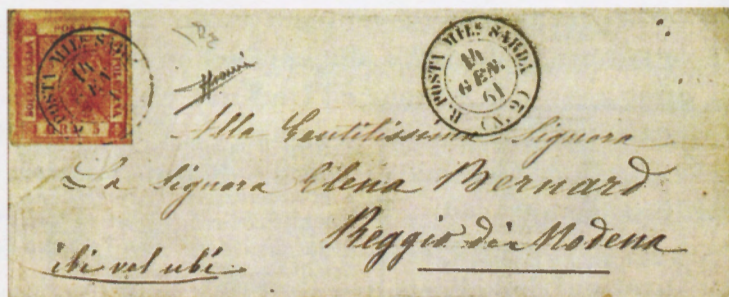 R. POSTA MIL.E SARDA
14
GEN.
61
(N. 2)
POSTA MIL.E SAR
14
GRA 5
Alla Gentilissima Signora
La Signora Elena Bernard
Reggio di Modena
ibi vel ubi